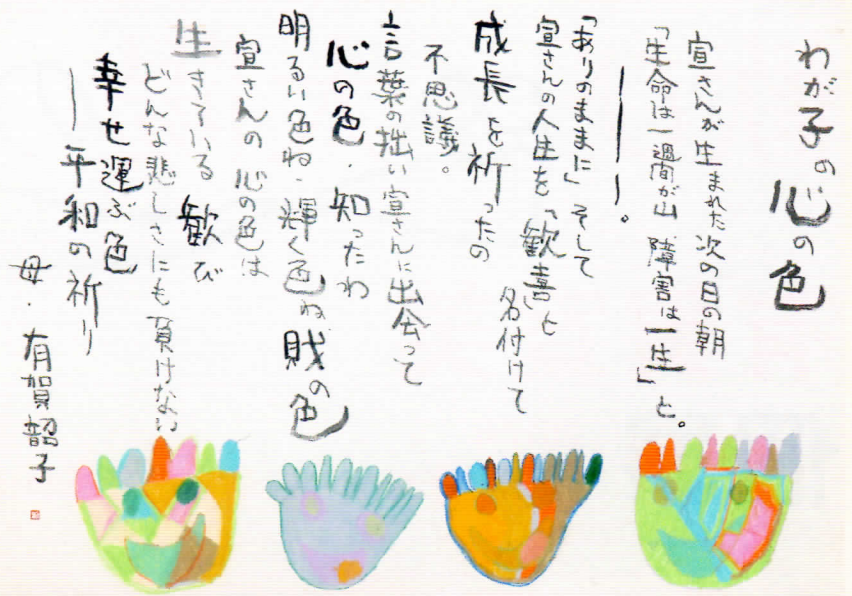 わが子の心の色
宣さんが生まれた次の日の朝
「生命は一週間が山 障害は一生」と。
ーーー。
「ありのままに」そして
宣さんの人生を「歓喜」と
名付けて
成長を祈ったの
不思議。
言葉の拙い宣さんに出会って
心の色・知ったわ
明るい色ね・輝く色ね 賎の色
宣さんの心の色は
生きている 歓び
どんな悲しさにも負けない
幸せ運ぶ色
ー平和の祈り
母・有賀韶子